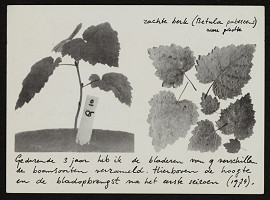 zachte berk (Betula pubescens)
Gedurende 3 jaar heb ik de bladeren van 9 verschillen
de boomsoorten verzameld. Hierboven de hoogte
en de bladopbrengst na het eerste seizoen (1976).